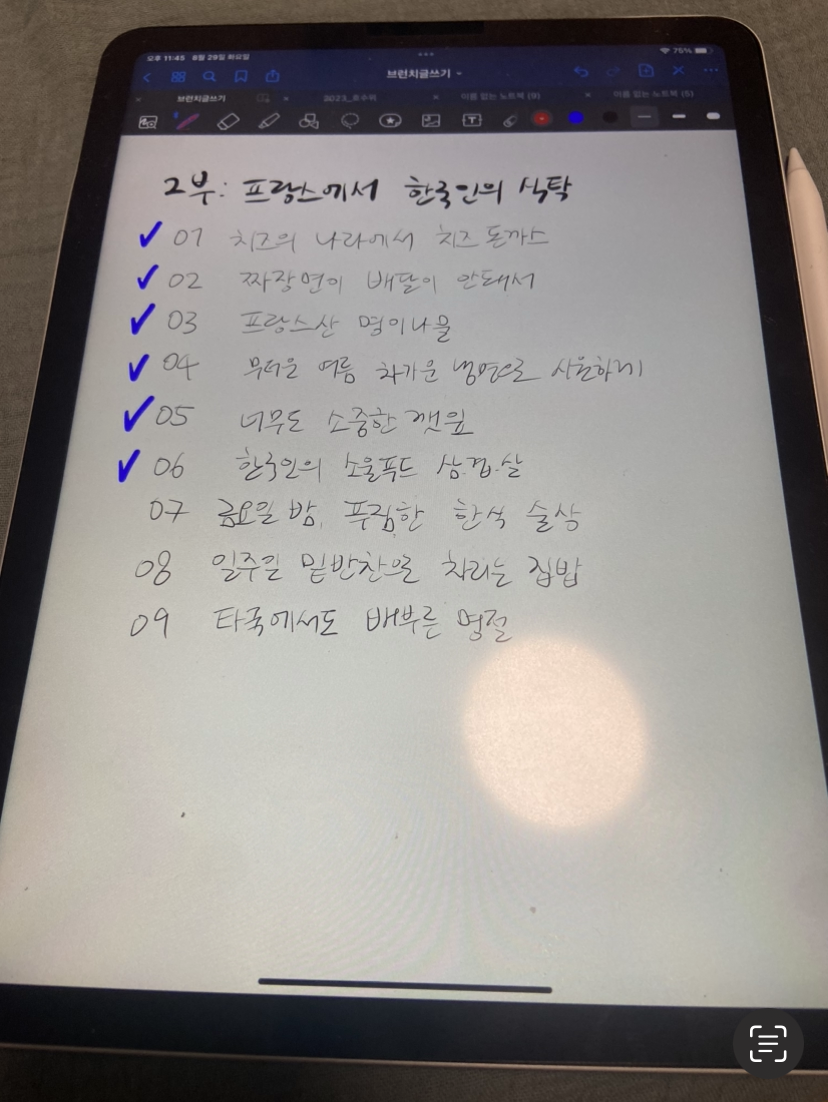 오후 11:45 8월 29일 화요일
75%
브런치글쓰기
브런치글쓰기 2023_호수위 이름 없는 노트북 (9) 이름 없는 노트북 (5)
2부: 프랑스에서 한국인의 식탁
✓ 01 치즈의 나라에서 치즈 돈까스
✓ 02 짜장면이 배달이 안돼서
✓ 03 프랑스산 명이나물
✓ 04 무더운 여름 차가운 냉면으로 시원하게
✓ 05 너무도 소중한 깻잎
✓ 06 한국인의 소울푸드 삼.겹.살
07 금요일 밤, 푸짐한 한식 술상
08 일주일 밑반찬으로 차리는 집밥
09 타국에서도 배부른 명절